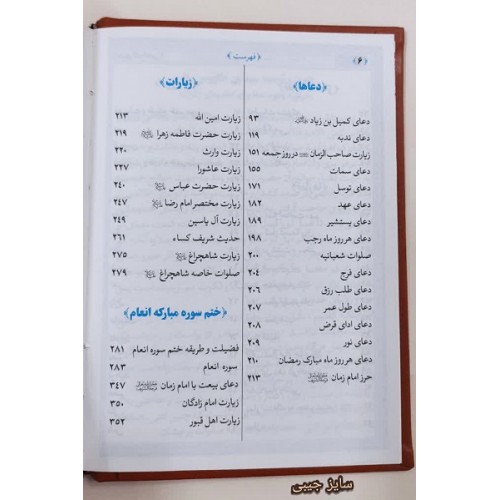 ﴿۶﴾
﴿ فهرست ﴾
﴿دعاها﴾
دعای کمیل بن زیاد ۹۳
دعای ندبه ۱۱۹
زیارت صاحب الزمان در روز جمعه ۱۵۱
دعای سمات ۱۵۵
دعای توسل ۱۷۱
دعای عهد ۱۸۲
دعای یستشیر ۱۸۹
دعای هر روز ماه رجب ۱۹۸
صلوات شعبانیه ۲۰۰
دعای فرج ۲۰۴
دعای طلب رزق ۲۰۶
دعای طول عمر ۲۰۷
دعای ادای قرض ۲۰۸
دعای نور ۲۰۹
دعای هر روز ماه مبارک رمضان ۲۱۰
حرز امام زمان ۲۱۳
﴿زیارات﴾
زیارت امین الله ۲۱۳
زیارت حضرت فاطمه زهرا ۲۱۹
زیارت وارث ۲۲۰
زیارت عاشورا ۲۲۷
زیارت حضرت عباس ۲۴۰
زیارت مختصر امام رضا ۲۴۷
زیارت آل یاسین ۲۴۹
حدیث شریف کساء ۲۶۱
زیارت شاهچراغ ۲۷۵
صلوات خاصه شاهچراغ ۲۷۹
﴿ختم سوره مبارکه انعام﴾
فضیلت و طریقه ختم سوره انعام ۲۸۱
سوره انعام ۲۸۳
دعای بیعت با امام زمان ۳۴۷
زیارت امام زادگان ۳۵۰
زیارت اهل قبور ۳۵۲
سایز جیبی